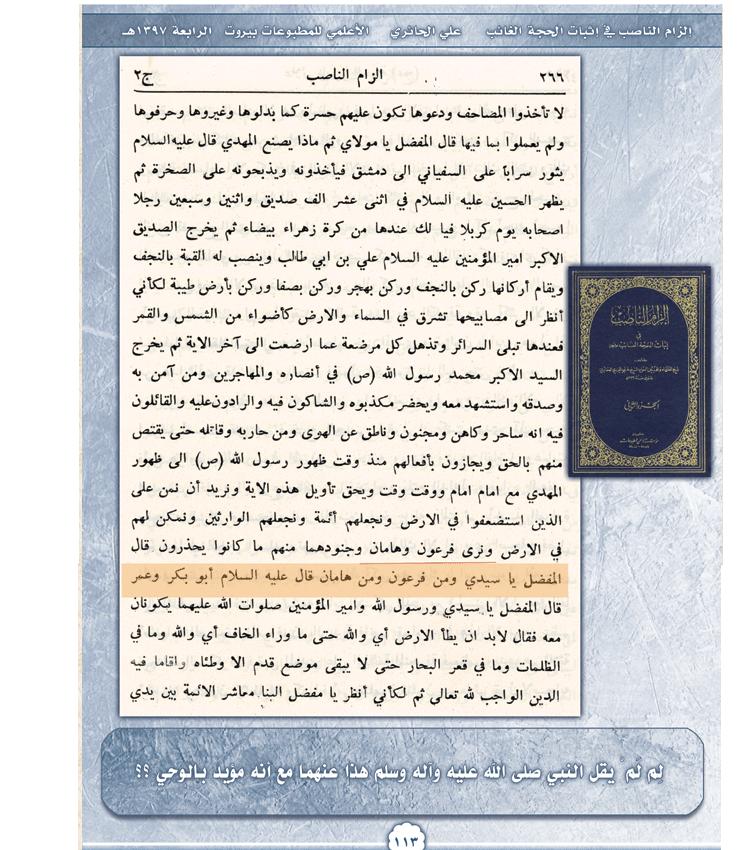 الزام الناصب في إثبات الحجة الغائب علي الحائري الأعلمي للمطبوعات بيروت الرابعة ١٣٩٧هـ
٢٦٦ الزام الناصب ج٢
لا تأخذوا المصاحف ودعوها تكون عليهم حسرة كما بدلوها وغيروها وحرفوها
ولم يعملوا بما فيها قال المفضل يا مولاي ثم ماذا يصنع المهدي قال عليه السلام
يثور سراباً على السفياني الى دمشق فيأخذونه ويذبحونه على الصخرة ثم
يظهر الحسين عليه السلام في اثنى عشر الف صديق واثنين وسبعين رجلا
اصحابه يوم كربلا فيا لك عندها من كرة زهراء بيضاء ثم يخرج الصديق
الاكبر امير المؤمنين عليه السلام علي بن ابي طالب وينصب له القبة بالنجف
ويقام أركانها ركن بالنجف وركن بهجر وركن بصفا وركن بأرض طيبة لكأني
أنظر الى مصابيحها تشرق في السماء والارض كأضواء من الشمس والقمر
فعندها تبلى السرائر وتذهل كل مرضعة عما ارضعت الى آخر الاية ثم يخرج
السيد الاكبر محمد رسول الله (ص) في أنصاره والمهاجرين ومن آمن به
وصدقه واستشهد معه ويحضر مكذبوه والشاكون فيه والرادون عليه والقائلون
فيه انه ساحر وكاهن ومجنون وناطق عن الهوى ومن حاربه وقاتله حتى يقتص
منهم بالحق ويجازون بأفعالهم منذ وقت ظهور رسول الله (ص) الى ظهور
المهدي مع امام امام ووقت وقت ويحق تأويل هذه الاية ونريد أن نمن على
الذين استضعفوا في الارض ونجعلهم أئمة ونجعلهم الوارثين ونمكن لهم
في الارض ونرى فرعون وهامان وجنودهما منهم ما كانوا يحذرون قال
المفضل يا سيدي ومن فرعون ومن هامان قال عليه السلام أبو بكر وعمر
قال المفضل يا سيدي ورسول الله وامير المؤمنين صلوات الله عليهما يكونان
معه فقال لابد ان يطأ الارض أي والله حتى ما وراء الخاف أي والله وما في
الظلمات وما في قعر البحار حتى لا يبقى موضع قدم الا وطئاه واقاما فيه
الدين الواجب لله تعالى ثم لكأني أنظر يا مفضل الينا معاشر الائمة بين يدي
إلزام الناصب
في
الجزء الثاني
لِم لَم يقل النبي صلى الله عليه وآله وسلم هذا عنهما مع أنه مؤيد بالوحي ؟؟
١١٣